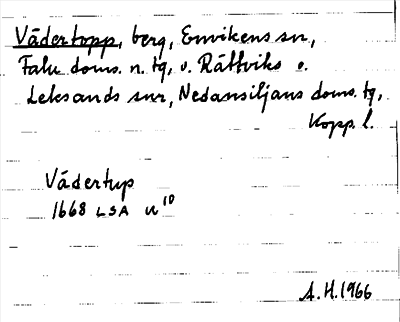 Vädertopp, berg, Envikens sn,
Falu doms. n. tg, o. Rättviks o.
Leksands snr, Nedansiljans doms. tg,
Kopp. l.
Vädertup
1668 LSA U 10
A.H. 1966